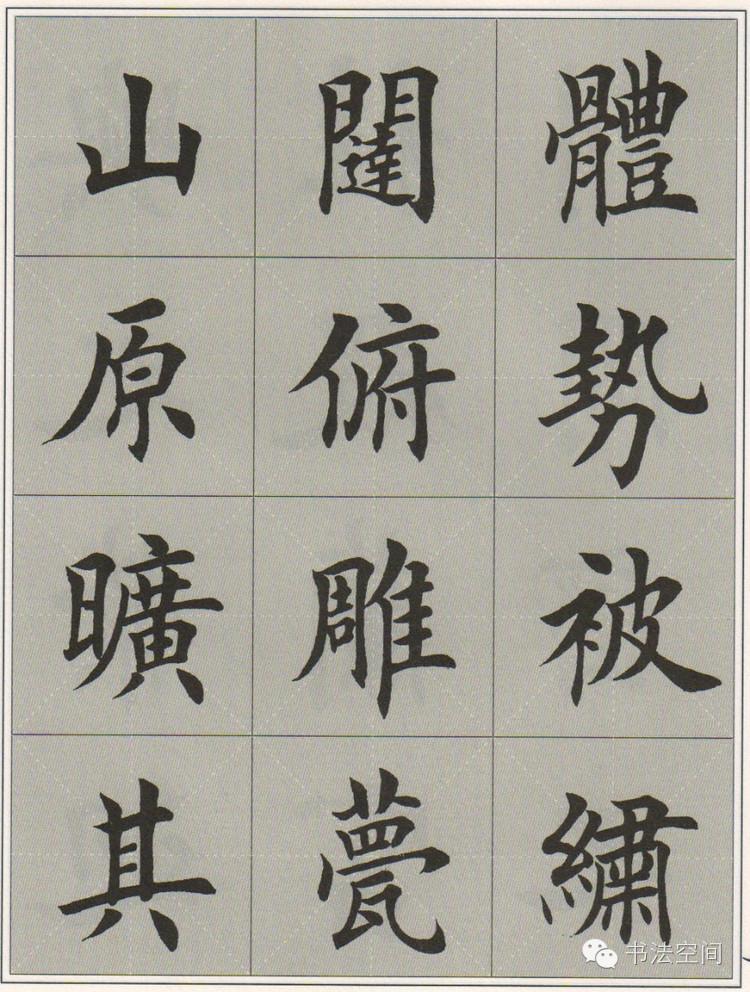 體勢被繡
闥俯雕甍
山原曠其
书法空间